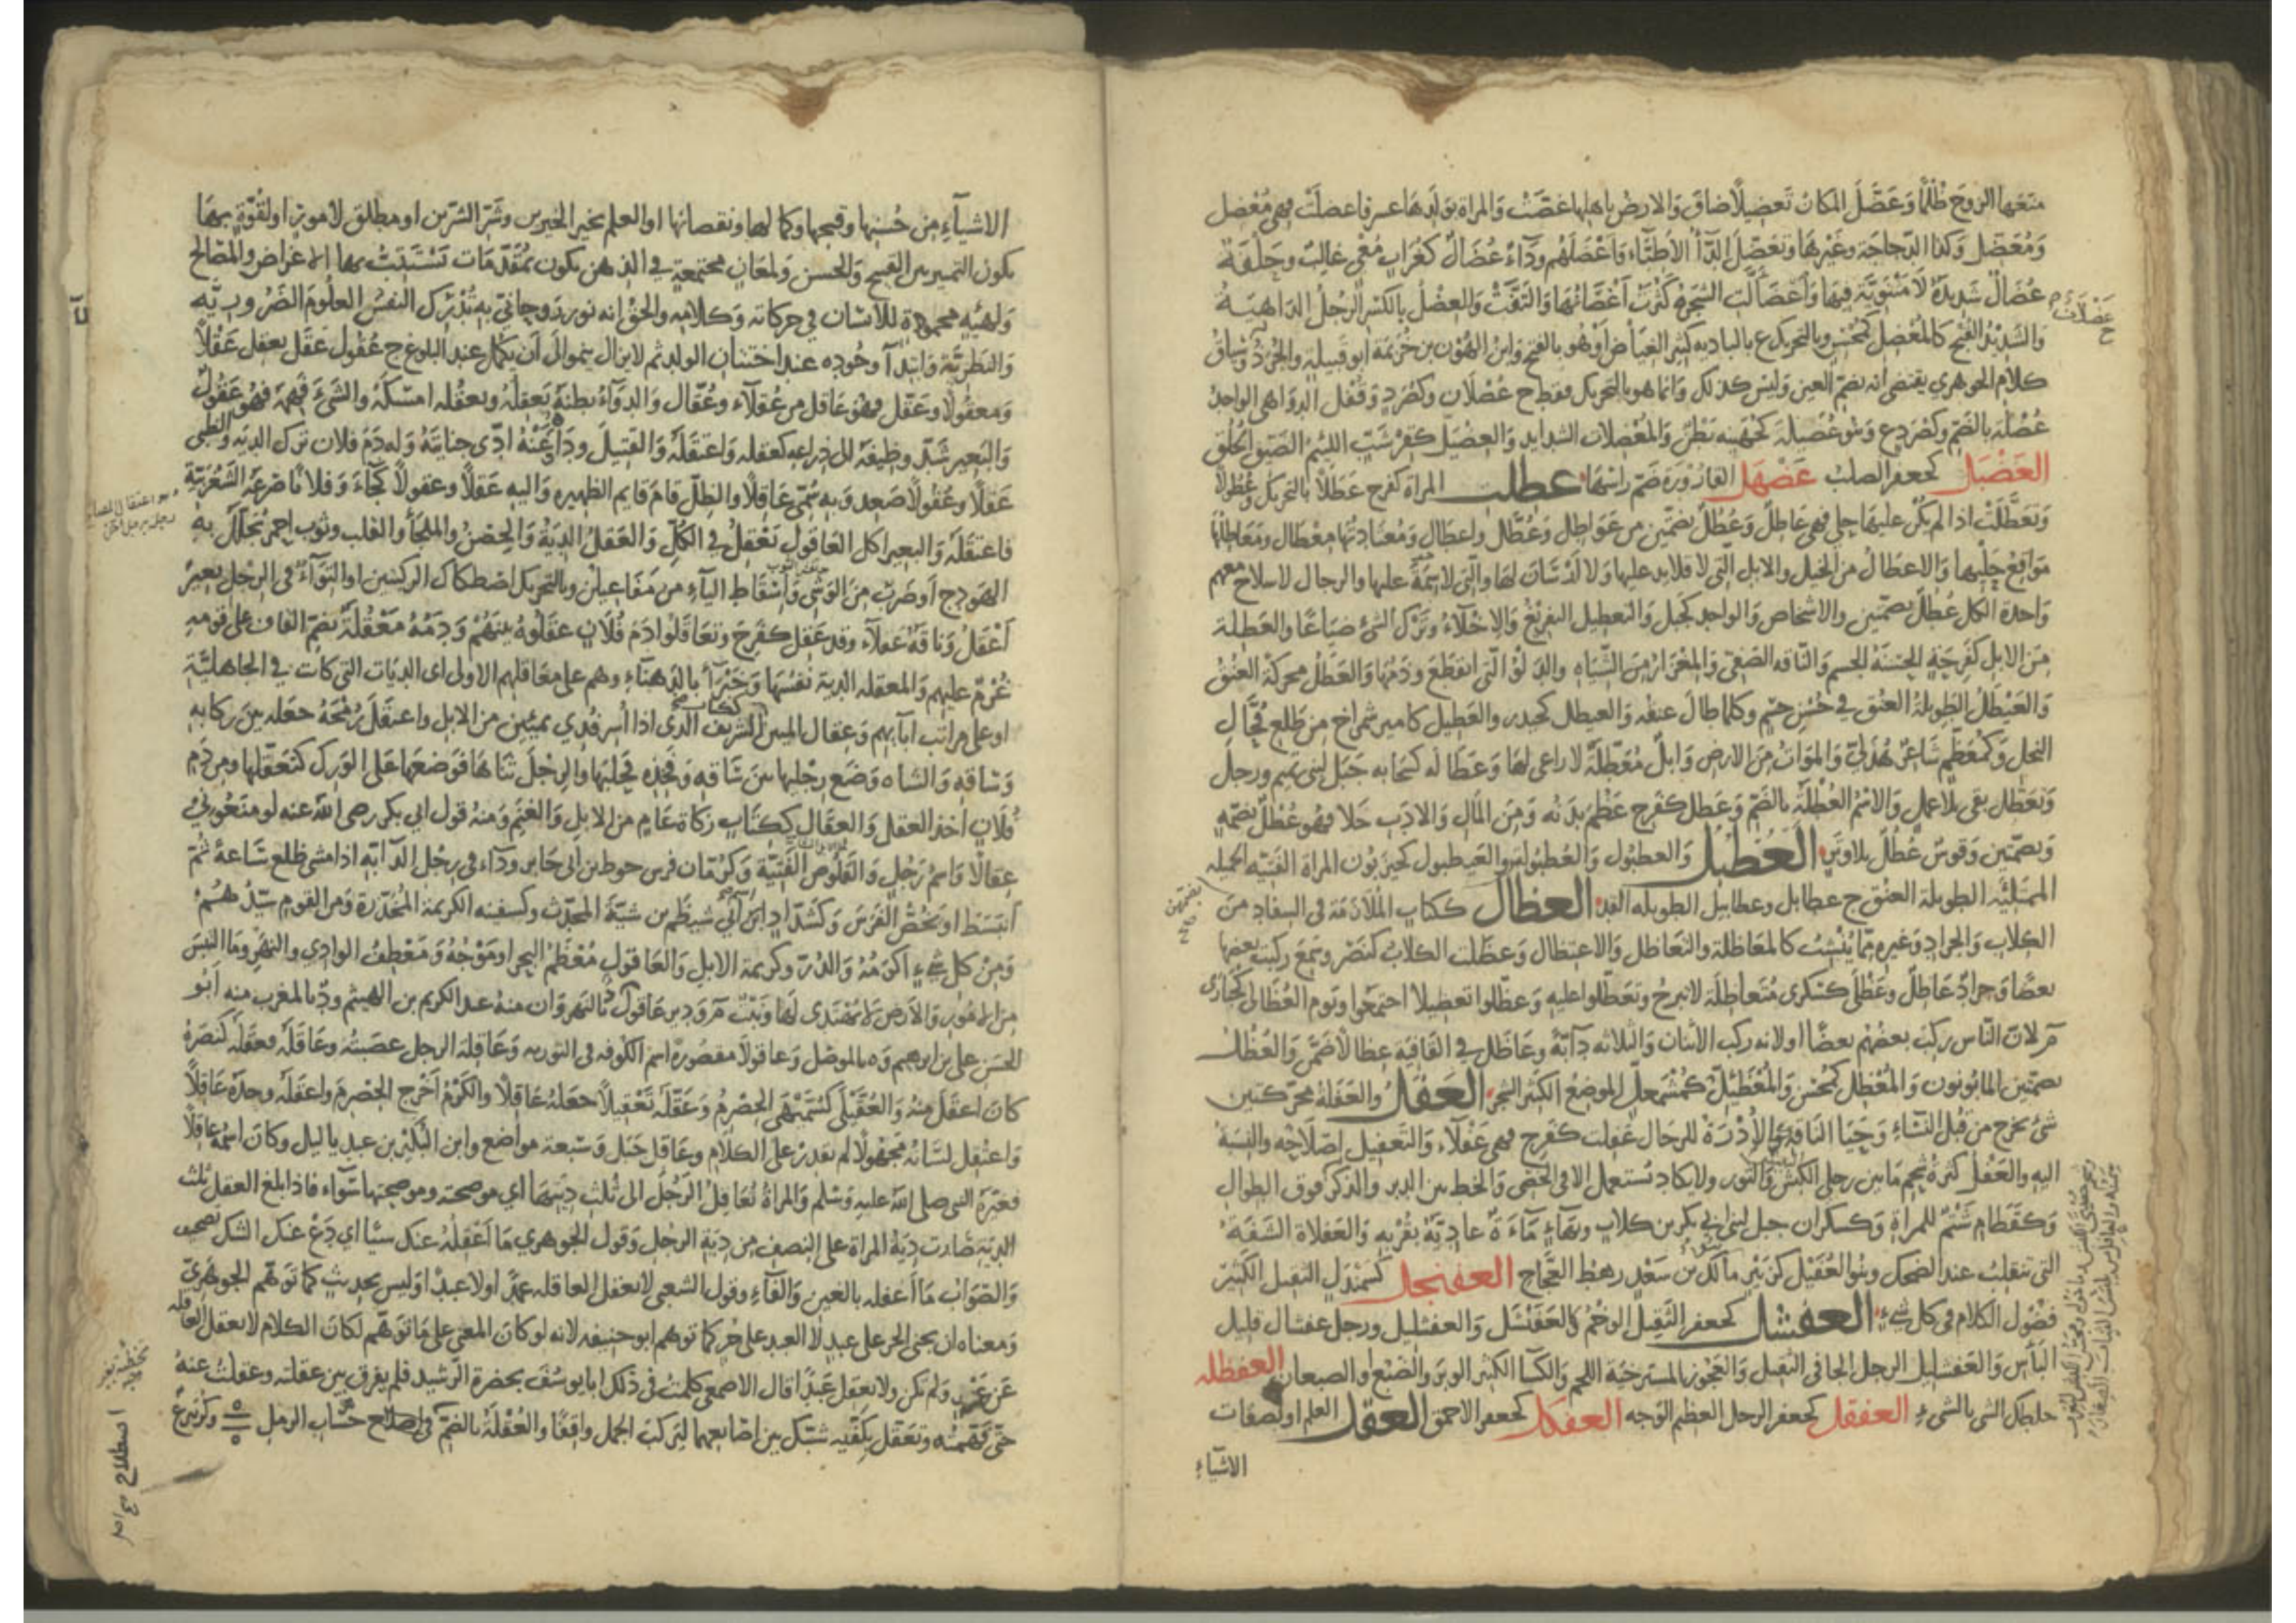 منعها الزوج ظلما وعضل المكان تعضيلا ضاق والارض باهلها غصت والمراة بولدها عسر فاعضلت فهي معضل
ومعضل وكذا الدجاجة وغيرها وتعضل الداء الاطباء واعضلهم وداء عضال كغراب معي غالب وحلفة
عضال شديدة لا مثنوية فيها واعضالت الشجرة كثرت اغصانها والتفت والعضل بالكسر الرجل الداهية
والشديد القبح كالمعضل كمحسن وبالتحريك ع بالبادية كثير الغياض او هو بالفتح وابن الهون بن خزيمة ابو قبيلة والجرذ وسياق
كلام الجوهري يقتضي انه بضم العين وليس كذلك وانما هو بالتحريك فقط ج عضلان وكصرد وقفل الدواهي الواحد
عضلة بالضم وكصرد ع وبنو عضيلة كجهينة بطن والمعضلات الشدايد والعضيل كقرشب اللئيم الضيق الخلق
العضبل كجعفر الصلب عضهل القارورة ضم راسها عطلت المراة كفرح عطلا بالتحريك وعطولا
وتعطلت اذا لم يكن عليها حلي فهي عاطل وعطل بضمتين من عواطل وعطل واعطال ومعتادتها معطال ومعاطلها
مواقع حليها والاعطال من الخيل والابل التي لا قلايد عليها ولا ارسان لها والتي لا سمة عليها والرجال لا سلاح معهم
واحدة الكل عطل بضمتين والاشخاص والواحد كجبل والتعطيل التفريغ والاخلاء وترك الشئ ضياعا والعطلة
من الابل كفرحة الحسنة الجسم والناقة الصفي والمغزار من الشياه والدلو التي انقطع وذمها والعطل محركة العنق
والعيطل الطويلة العنق في حسن جسم وكلما طال عنقه والعيطل كحيدر والعطيل كامير شمراخ من طلع فحال
النخل وكمعظم شاعر هذلي والموات من الارض وابل معطلة لا راعي لها وعطالة كسحابة جبل لبني تميم ورجل
وتعطل بقي بلا عمل والاسم العطلة بالضم وعطل كفرح عظم بدنه ومن المال والادب خلا فهو عطل بضمة
وبضمتين وقوس عطل بلا وتر العطبل والعطبول والعطبولة والعيطبول كحيزبون المراة الفتية الجميلة
الممتلئة الطويلة العنق ج عطابل وعطابيل الطويلة القد العظال ككتاب الملازمة في السفاد من
الكلاب والجراد وغيره مما ينشب كالمعاظلة والتعاظل والاعتظال وعظلت الكلاب كنصر وسمع ركبت بعضها
بعضا وجراد عاظل وعظلى كسكرى متعاظلة لا تبرح وتعظلوا عليه وعظلوا تعظيلا اجتمعوا ويوم العظالى كحبارى
م لان الناس ركب بعضهم بعضا او لانه ركب الاثنان والثلاثة دابة وعاظل في القافية عظالا ضمن والعظل
بضمتين المابونون والمعظل كمحسن والمعظئل كمشمعل الموضع الكثير الشجر العفل والعفلة محركتين
شئ يخرج من قبل النساء وحيا الناقة كالادرة للرجال عفلت كفرح فهي عفلاء والتعفيل اصلاحه والنسبة
اليه والعفل كثرة شحم ما بين رجلي الكبش والثور ولا يكاد يستعمل الا في الخصي والخط بين الدبر والذكر فوق الطوال
وكقطام شتم للمراة وكسكران جبل لبني ابي بكر بن كلاب وبهاء ماءة عادية بقربه والعفلاة الشفة
التي تنقلب عند الضحك وبنو العفيل كزبير مالك بن سعد رهط العجاج العفنجل كسمندل الثقيل الكثير
فضول الكلام في كل شئ العفشل كجعفر الثقيل الوخم كالعفنشل والعفشليل ورجل عفشال قليل
الباس والعفشليل الرجل الجافي الثقيل والعجوز المسترخية اللحم والكسا الكثير الوبر والضبع او الضبعان العفظلة
خلطك الشئ بالشئ العفقل كجعفر الرجل العظيم الوجه العفكل كجعفر الاحمق العقل العلم او بصفات
الاشياء
الاشياء من حسنها وقبحها وكمالها ونقصانها او العلم بخير الخيرين وشر الشرين او مطلق لامور او لقوة بها
يكون التمييز بين القبح والحسن ولمعان مجتمعة في الذهن يكون بمقدمات تستتب بها الاغراض والمصالح
ولهيئة محمودة للانسان في حركاته وكلامه والحق انه نور روحاني به تدرك النفس العلوم الضرورية
والنظرية وابتدا وجوده عند اجتنان الولد ثم لا يزال ينمو الى ان يكمل عند البلوغ ج عقول عقل يعقل عقلا
ومعقولا وعقل فهو عاقل من عقلاء وعقال والدواء بطنه يعقله ويعقله امسكه والشئ فهمه فهو عقول
والبعير شد وظيفه الى ذراعه كعقله واعتقله والقتيل وداه وعنه ادى جنايته وله دم فلان ترك الدية والظبي
عقلا وعقولا صعد وبه سمي عاقلا والظل قام قايم الظهيرة واليه عقلا وعقولا لجاء وفلانا صرعه الشغزبية
فاعتقله والبعير اكل العاقول تعقل في الكل والعقل الدية والحصن والملجا والقلب وثوب احمر يجلل به
الهودج او ضرب من الوشي واسقاط الياء من مفاعيلن وبالتحريك اصطكاك الركبتين او التواء في الرجل بعير
اعقل وناقة عقلاء وقد عقل كفرح وتعاقلوا دم فلان عقلوه بينهم ودمه معقلة بضم القاف على قومه
غرم عليهم والمعقلة الدية نفسها وخبراء بالدهناء وهم على معاقلهم الاولى اي الديات التي كانت في الجاهلية
او على مراتب ابايهم وعقال المئين ككتاب الشريف الذي اذا اسر فدي بمئين من الابل واعتقل رمحه جعله بين ركابه
وساقه والشاه وضع رجلها بين ساقه وفخذه فحلبها والرجل ثناها فوضعها على الورك كتعقلها ومن دم
فلان اخذ العقل والعقال ككتاب زكاة عام من الابل والغنم ومنه قول ابي بكر رضي الله عنه لو منعوني
عقالا واسم رجل والقلوص الفتية وكرمان فرس حوط بن ابي جابر وداء في رجل الدابة اذا مشى ظلع ساعة ثم
انبسط او يخص الفرس وكشداد ابن ابي شيظم بن شبة المحدث وكسفينة الكريمة المخدرة ومن القوم سيدهم
ومن كل شئ اكرمه والدر وكريمة الابل والعاقول معظم البحر او موجه ومعطف الوادي والنهر وما التبس
من الامور والارض لا يهتدى لها ونبت م ودير عاقول د بالنهروان منه عبد الكريم بن الهيثم ود بالمغرب منه ابو
الحسن علي بن ابرهيم وة بالموصل وعاقولا مقصورة اسم الكوفة في التورية وعاقلة الرجل عصبته وعاقله فعقله كنصره
كان اعقل منه والعقيلى كسميهى الحصرم وعقله تعقيلا جعله عاقلا والكرم اخرج الحصرم واعقله وجده عاقلا
واعتقل لسانه مجهولا لم يقدر على الكلام وعاقل جبل وسبعة مواضع وابن البكير بن عبد ياليل وكان اسمه غافلا
فغيره النبي صلى الله عليه وسلم والمراة تعاقل الرجل الى ثلث ديتها اي موضحته وموضحتها سواء فاذا بلغ العقل ثلث
الدية صارت دية المراة على النصف من دية الرجل وقول الجوهري ما اعقله عنك شيا اي دع عنك الشك تصحيف
والصواب ما اغفله بالغين والفاء وقول الشعبي لا تعقل العاقلة عمدا ولا عبدا وليس بحديث كما توهم الجوهري
ومعناه ان يجني الحر على عبد لا العبد على حر كما توهم ابو حنيفه لانه لو كان المعنى على ما توهم لكان الكلام لا تعقل العاقلة
عن عبد ولم يكن ولا تعقل عبدا قال الاصمعي كلمت في ذلك ابا يوسف بحضرة الرشيد فلم يفرق بين عقلته وعقلت عنه
حتى فهمته وتعقل بكفيه شبك بين اصابعهما ليركب الجمل واقفا والعقلة بالضم في اصطلاح حساب الرمل وكزبير ع